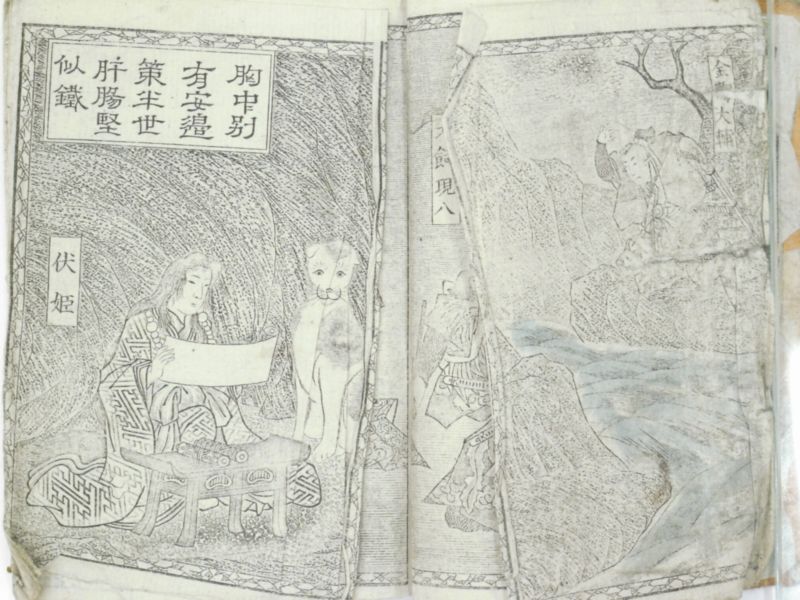 胸中别
有安邉
策半世
肝膓堅
似鐵
伏姫
現八
大輔